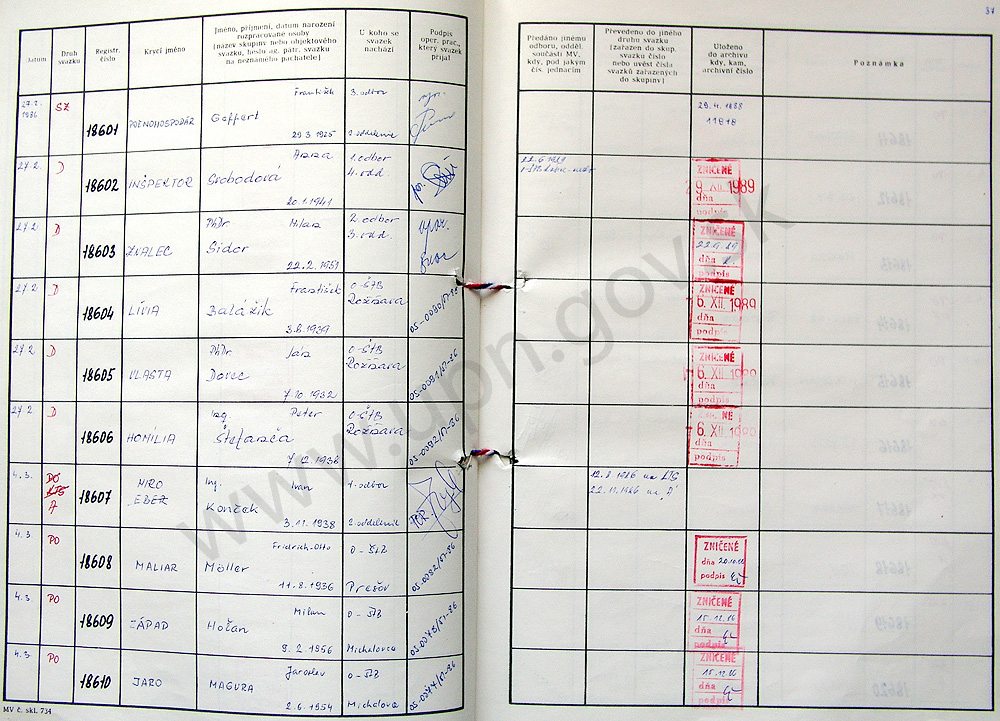 37
Datum
Druh svazku
Registr. číslo
Krycí jméno
Jméno, příjmení, datum narození
rozpracované osoby
(název skupiny nebo objektového
svazku, heslo ag. pátr. svazku
na neznámého pachatele)
U koho se
svazek
nachází
Podpis
oper. prac.,
který svazek
přijal
Předáno jinému
odboru, odděl.
součásti MV,
kdy, pod jakým
čís. jednacím
Převedeno do jiného
druhu svazku
(zařazen do skup.
svazku číslo
nebo uvést čísla
svazků zařazených
do skupiny)
Uloženo
do archivu
kdy, kam,
archivní číslo
Poznámka
27.2. 1986 SZ 18601 POĽNOHOSPODÁR František
Geffert
29.3.1925
3. odbor
2. oddelenie
29.4.1988
27.2. D 18602 INŠPEKTOR Anna
Svobodová
20.1.1941
1. odbor
4. odd
22.6.1989
ZNIČENÉ
9 XII. 1989
dňa
podpis
27.2. D 18603 ZNALEC PhDr. Milan
Sidor
22.2.1951
2. odbor
3. odd.
ZNIČENÉ
22.9.89
dňa
podpis
27.2. D 18604 LÍVIA František
Balážik
3.8.1939
O-ŠTB
Rožňava
ZNIČENÉ
6. XII. 1989
dňa
podpis
27.2. D 18605 VLASTA PhDr Ján
Dorec
7.10.1932
O-ŠTB
Rožňava
ZNIČENÉ
6 XII 1989
dňa
podpis
27.2 D 18606 HOMÍLIA Ing Peter
Štefanča
7.12.1936
O-ŠTB
Rožňava
ZNIČENÉ
6. XII. 1989
dňa
podpis
4.3. DÔ
KTS
A
18607 MIRO
EBER
Ing. Ivan
Konček
3.11.1938
1. odbor
2. oddelenie
12.8.1986 na KTS
22.11.1986 na "A"
4.3. PO 18608 MALIAR Fridrich-Otto
Möller
11.8.1936
O-ŠTB
Prešov
ZNIČENÉ
dňa 20.10.86
podpis
4.3 PO 18609 ZÁPAD Milan
Hoťan
9.2.1956
O-ŠTB
Michalovce
ZNIČENÉ
15.12.86
dňa
podpis
4.3. PO 18610 JARO Jaroslav
MAGURA
2.6.1954
O-ŠTB
Michalovce
ZNIČENÉ
15.12.86
dňa
podpis
MV č. skl. 734
www.upn.gov.sk